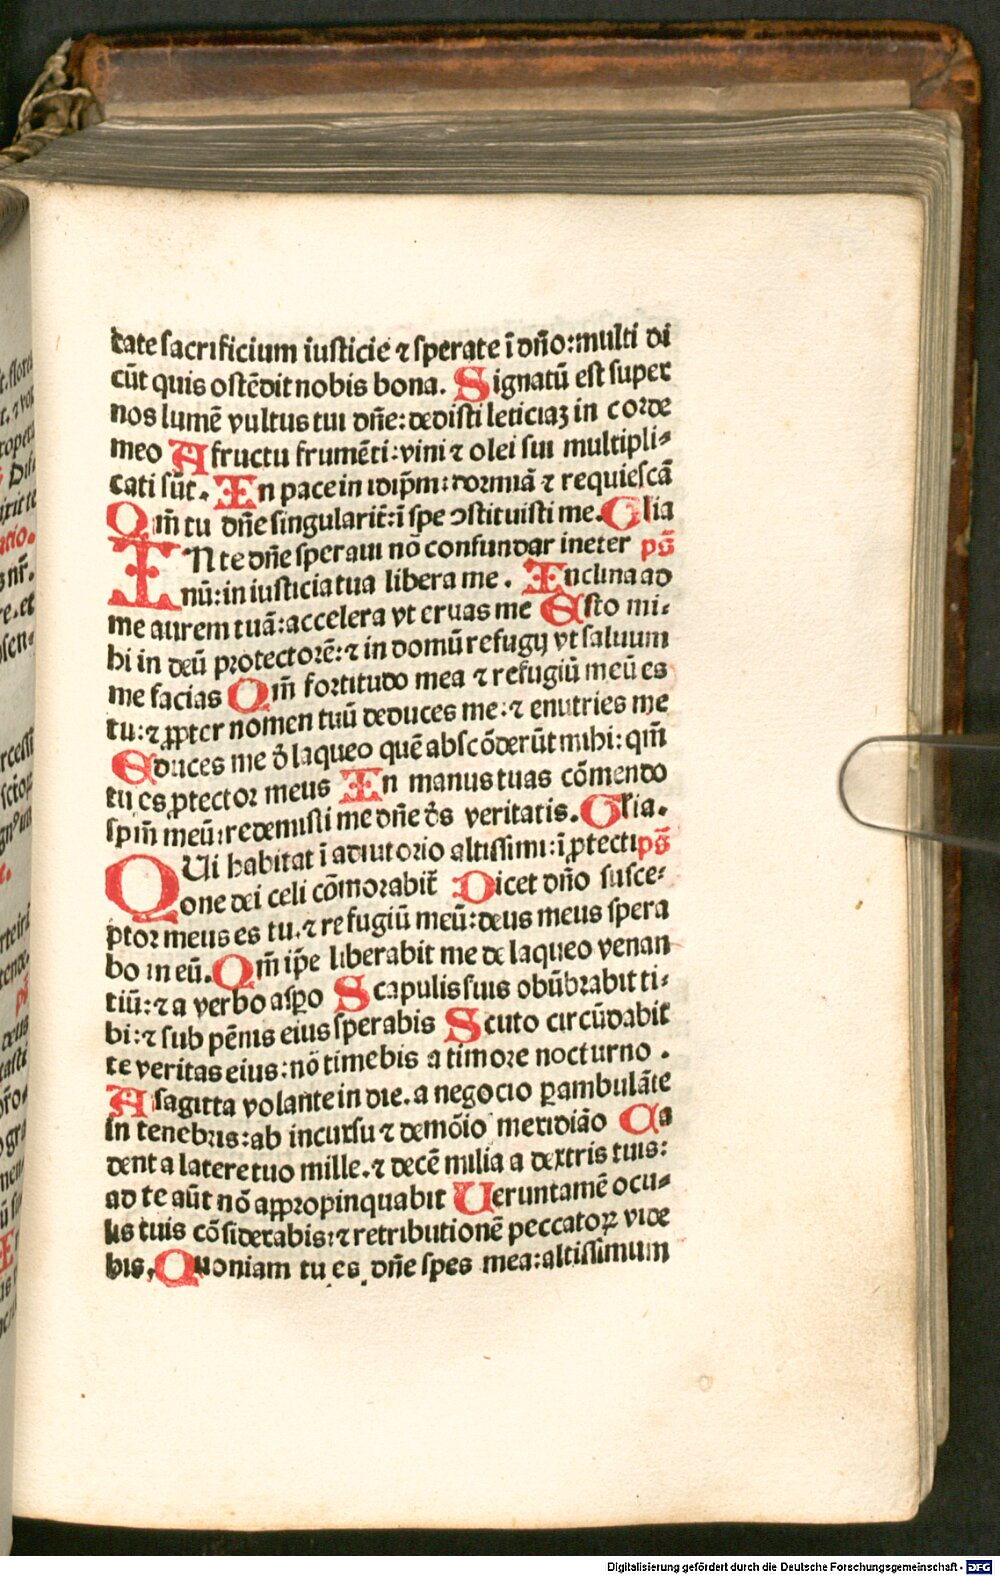 cate sacrificium iusticie ⁊ sperate ī dn̄o: multi di
cūt quis ostēdit nobis bona. Signatū est super
nos lumē vultus tui dn̄e: dedisti leticiaꝫ in corde
meo A fructu frumēti: vini ⁊ olei sui multipli-
cati sūt. In pace in idip̄m: dormiā ⁊ requiescā
Qm̄ tu dn̄e singularit̄: ī spe ꝯstituisti me. Glia
IN te dn̄e speraui nō confundar in eter ps̄
nū: in iusticia tua libera me. Inclina ad
me aurem tuā: accelera vt eruas me Esto mi-
hi in deū protectorē: ⁊ in domū refugij vt saluum
me facias Qm̄ fortitudo mea ⁊ refugiū meū es
tu: ⁊ ꝓpter nomen tuū deduces me: ⁊ enutries me
Educes me d̄ laqueo quē abscōderūt mihi: qm̄
tu es ꝓtector meus In manus tuas cōmendo
spm̄ meū: redemisti me dn̄e ds̄ veritatis. Glia.
QUi habitat ī adiutorio altissimi: ī ꝓtecti ps̄
one dei celi cōmorabit̄ Dicet dn̄o susce-
ptor meus es tu. ⁊ refugiū meū: deus meus spera
bo in eū. Qm̄ ip̄e liberabit me de laqueo venan
tiū: ⁊ a verbo asꝑo Scapulis suis obūbrabit ti-
bi: ⁊ sub pēnis eius sperabis Scuto circūdabit
te veritas eius: nō timebis a timore nocturno.
A sagitta volante in die. a negocio ꝑambulāte
in tenebris: ab incursu ⁊ demōio meridiāo Ca
dent a latere tuo mille. ⁊ decē milia a dextris tuis:
ad te aūt nō appropinquabit Ueruntamē ocu-
lis tuis cōsiderabis: ⁊ retributionē peccatoꝝ vide
bis. Quoniam tu es dn̄e spes mea: altissimum
Digitalisierung gefördert durch die Deutsche Forschungsgemeinschaft - DFG